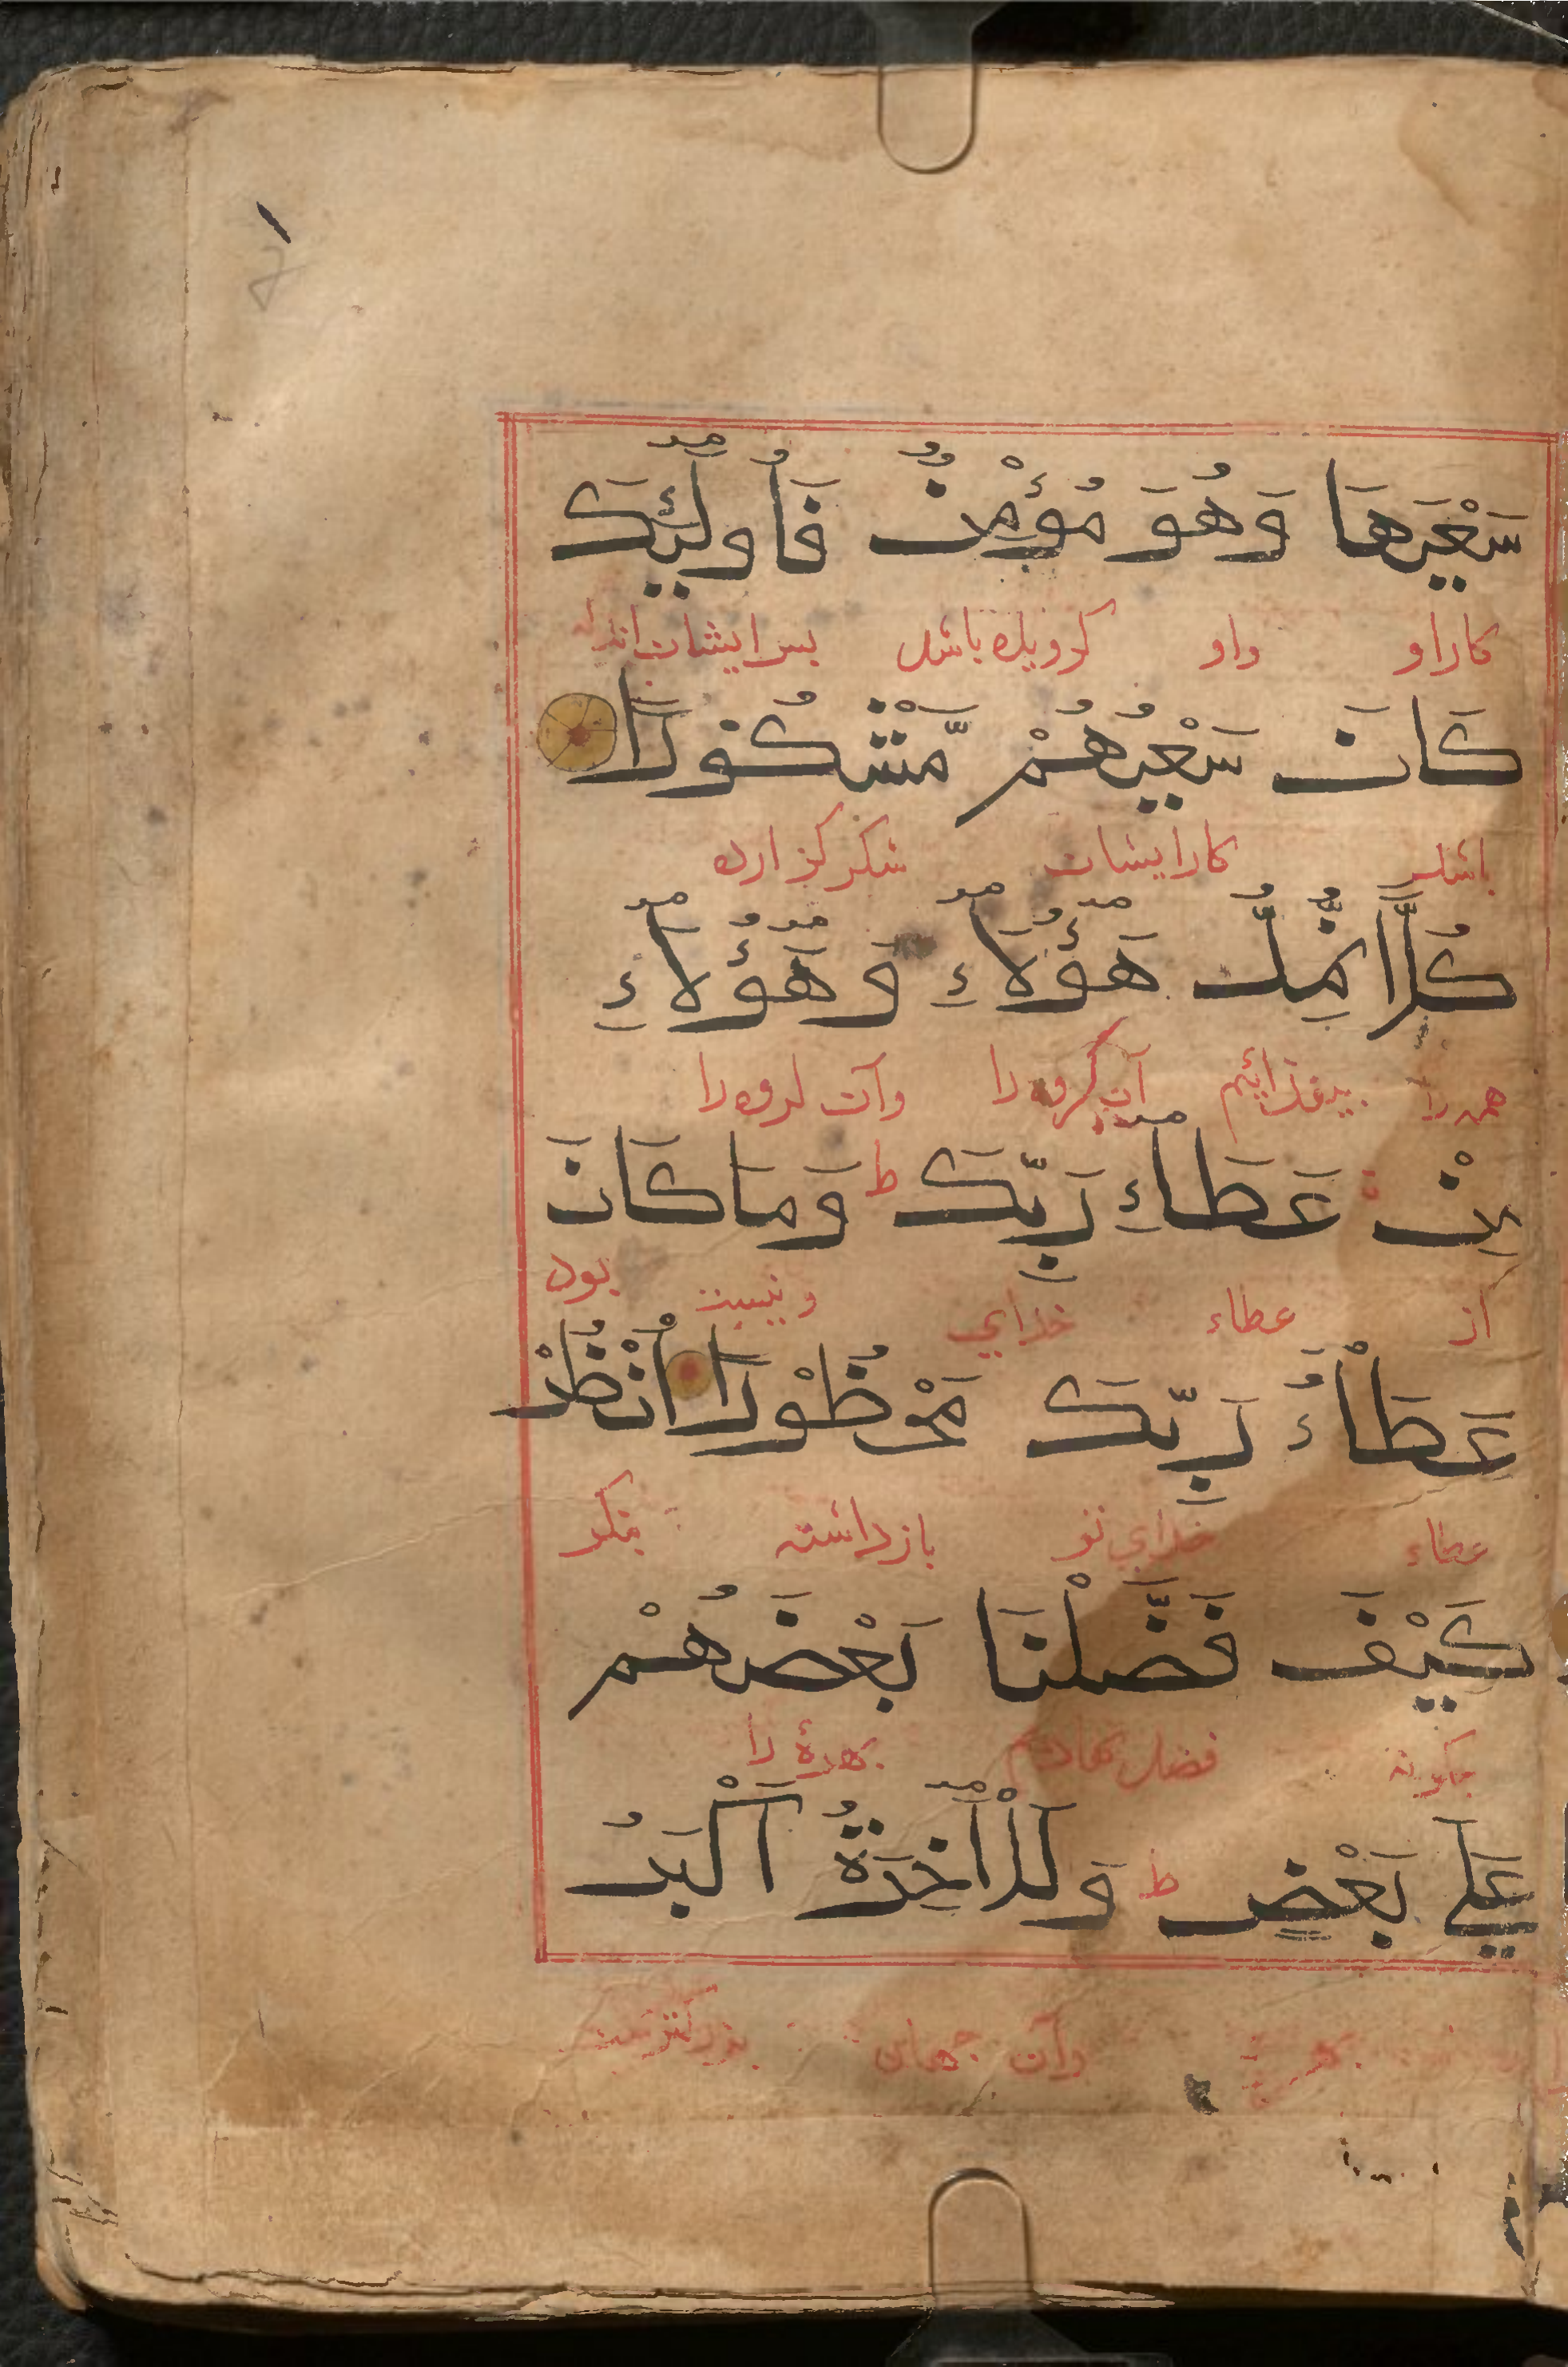 سَعْيَهَا وَهُوَ مُؤْمِنٌ فَأُولَٰئِكَ
كاراو واو كرويده باشد بس ايشان اند
كَانَ سَعْيُهُمْ مَّشْكُورًا
باشد كارايشان شكر كزارده
كُلًّا نُّمِدُّ هَٰؤُلَاءِ وَهَٰؤُلَاءِ
همه را بيفزائيم آن كروه را وآن كروه را
مِنْ عَطَاءِ رَبِّكَ ط وَمَا كَانَ
از عطاء خداي ونيست بود
عَطَاءُ رَبِّكَ مَحْظُورًا انْظُرْ
عطاء خداي تو بازداشته بنكر
كَيْفَ فَضَّلْنَا بَعْضَهُمْ
جكونه فضل نهاديم بهرهٔ را
عَلَي بَعْضٍ ط وَلَلْآخِرَةُ أَكْبَرُ
وآن جهان بزركترست